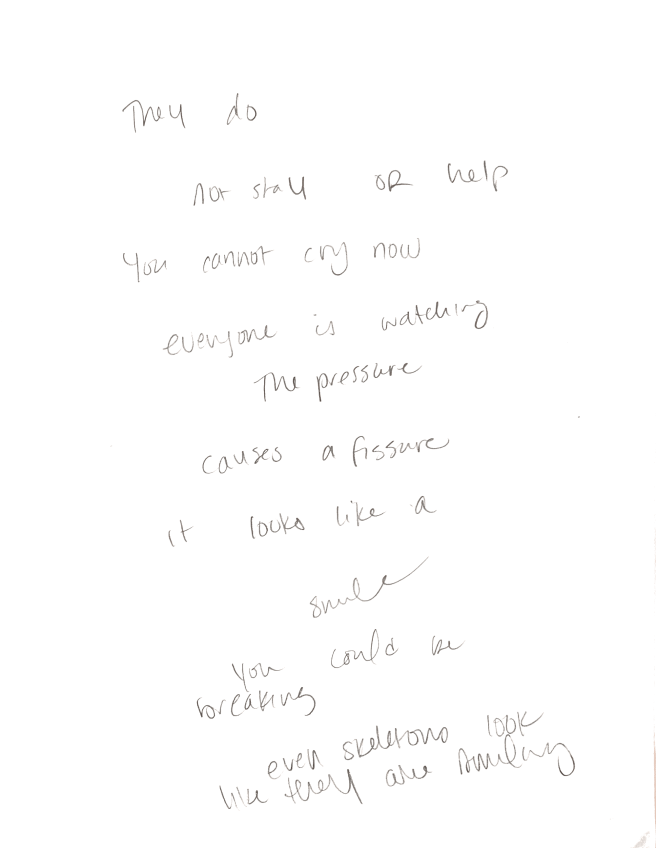 They do
not stay OR help
You cannot cry now
everyone is watching
The pressure
causes a fissure
it looks like a
smile
you could be
breaking
even skeletons look
like they are smiling